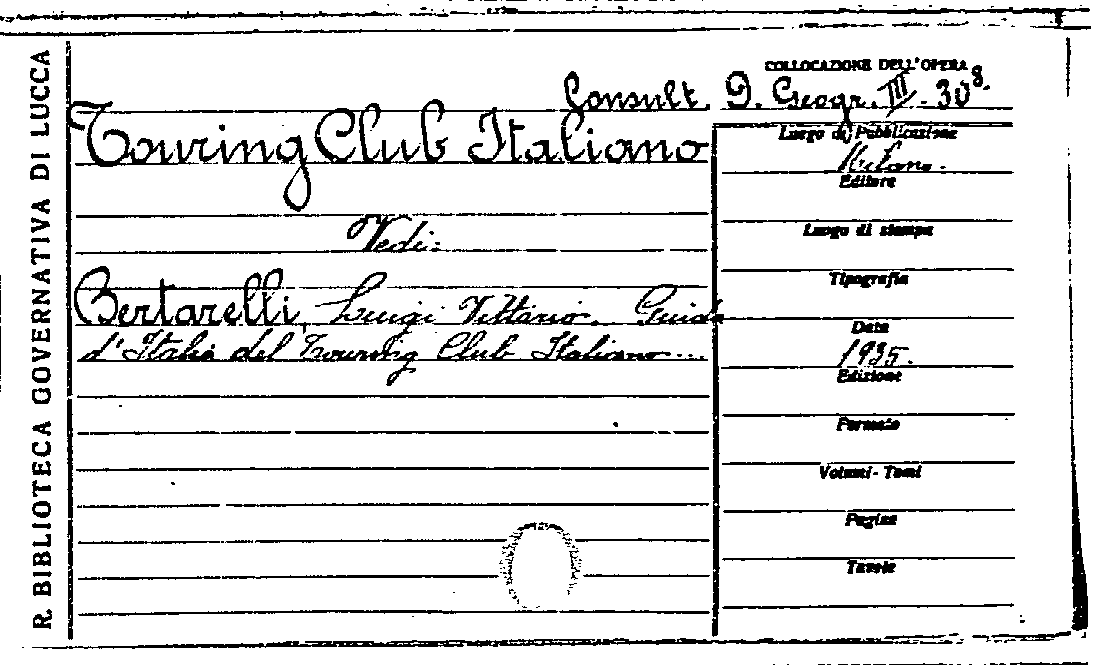 R. BIBLIOTECA GOVERNATIVA DI LUCCA
COLLOCAZIONE DELL'OPERA
Consult. D. Geogr. III. 30⁸.
Touring Club Italiano
Vedi:
Bertarelli, Luigi Vittorio. Guida
d'Italia del Touring Club Italiano....
Luogo di Pubblicazione
Milano.
Editore
Luogo di stampa
Tipografia
Data
1935.
Edizione
Formato
Volumi - Tomi
Pagine
Tavole